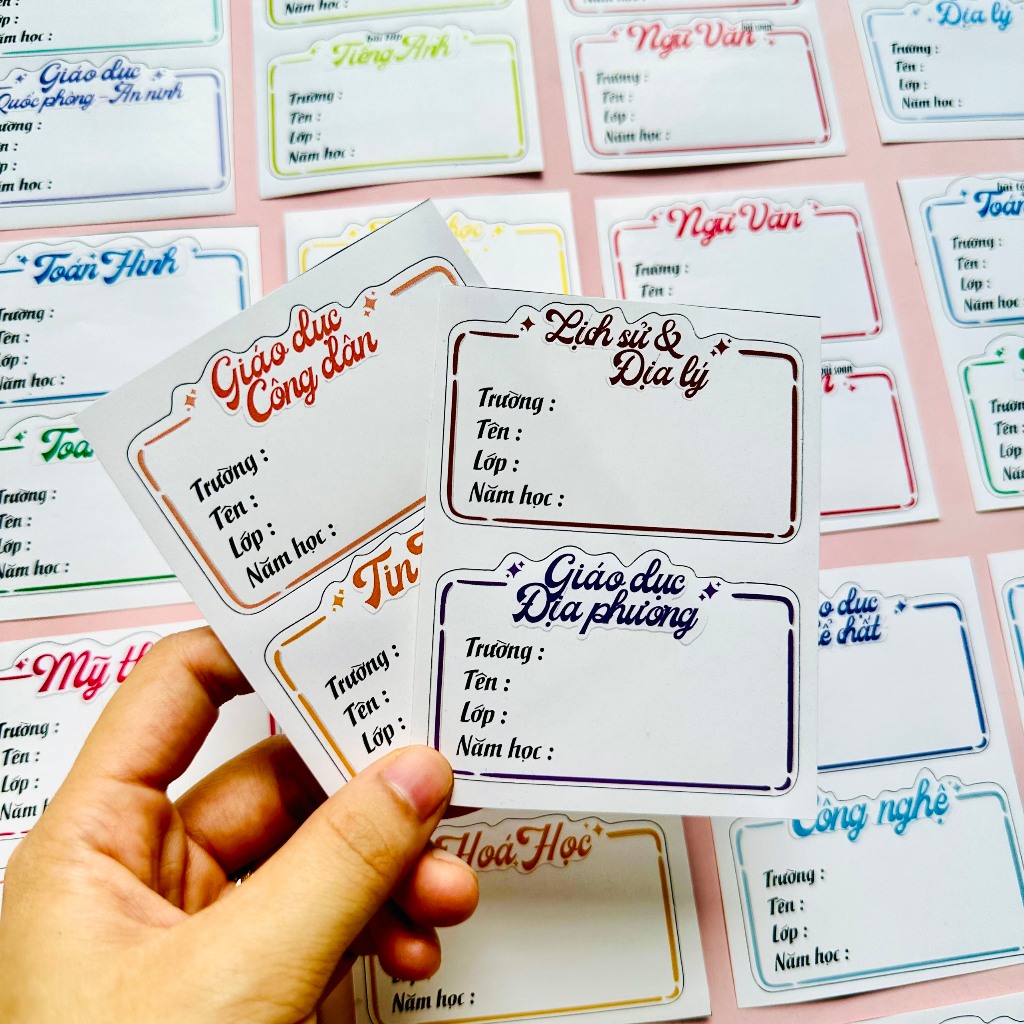 Tên :
Lớp :
Năm học :
Giáo dục
Quốc phòng - An ninh
Trường :
Tên :
Lớp :
Năm học :
bài tập
Tiếng Anh
Trường :
Tên :
Lớp :
Năm học :
Ngữ Văn bài soạn
Trường :
Tên :
Lớp :
Năm học :
Địa lý
Trường :
Tên :
Lớp :
Năm học :
Toán Hình
Trường :
Tên :
Lớp :
Năm học :
học
Ngữ Văn
Trường :
Tên :
bài soạn
Toán
Trường :
Tên :
Lớp :
Năm học
Trường :
Tên :
Lớp :
Năm học :
Trường
Tên :
Lớp :
Giáo dục
Công dân
Trường :
Tên :
Lớp :
Năm học :
Tin
Trường :
Tên :
Lớp :
Lịch sử &
Địa lý
Trường :
Tên :
Lớp :
Năm học :
Giáo dục
Địa phương
Trường :
Tên :
Lớp :
Năm học :
Mỹ
Trường :
Tên :
Lớp :
Năm
dục
chất
Hoá Học
Năm học :
Công nghệ
Trường :
Tên :
Lớp :
Năm học :